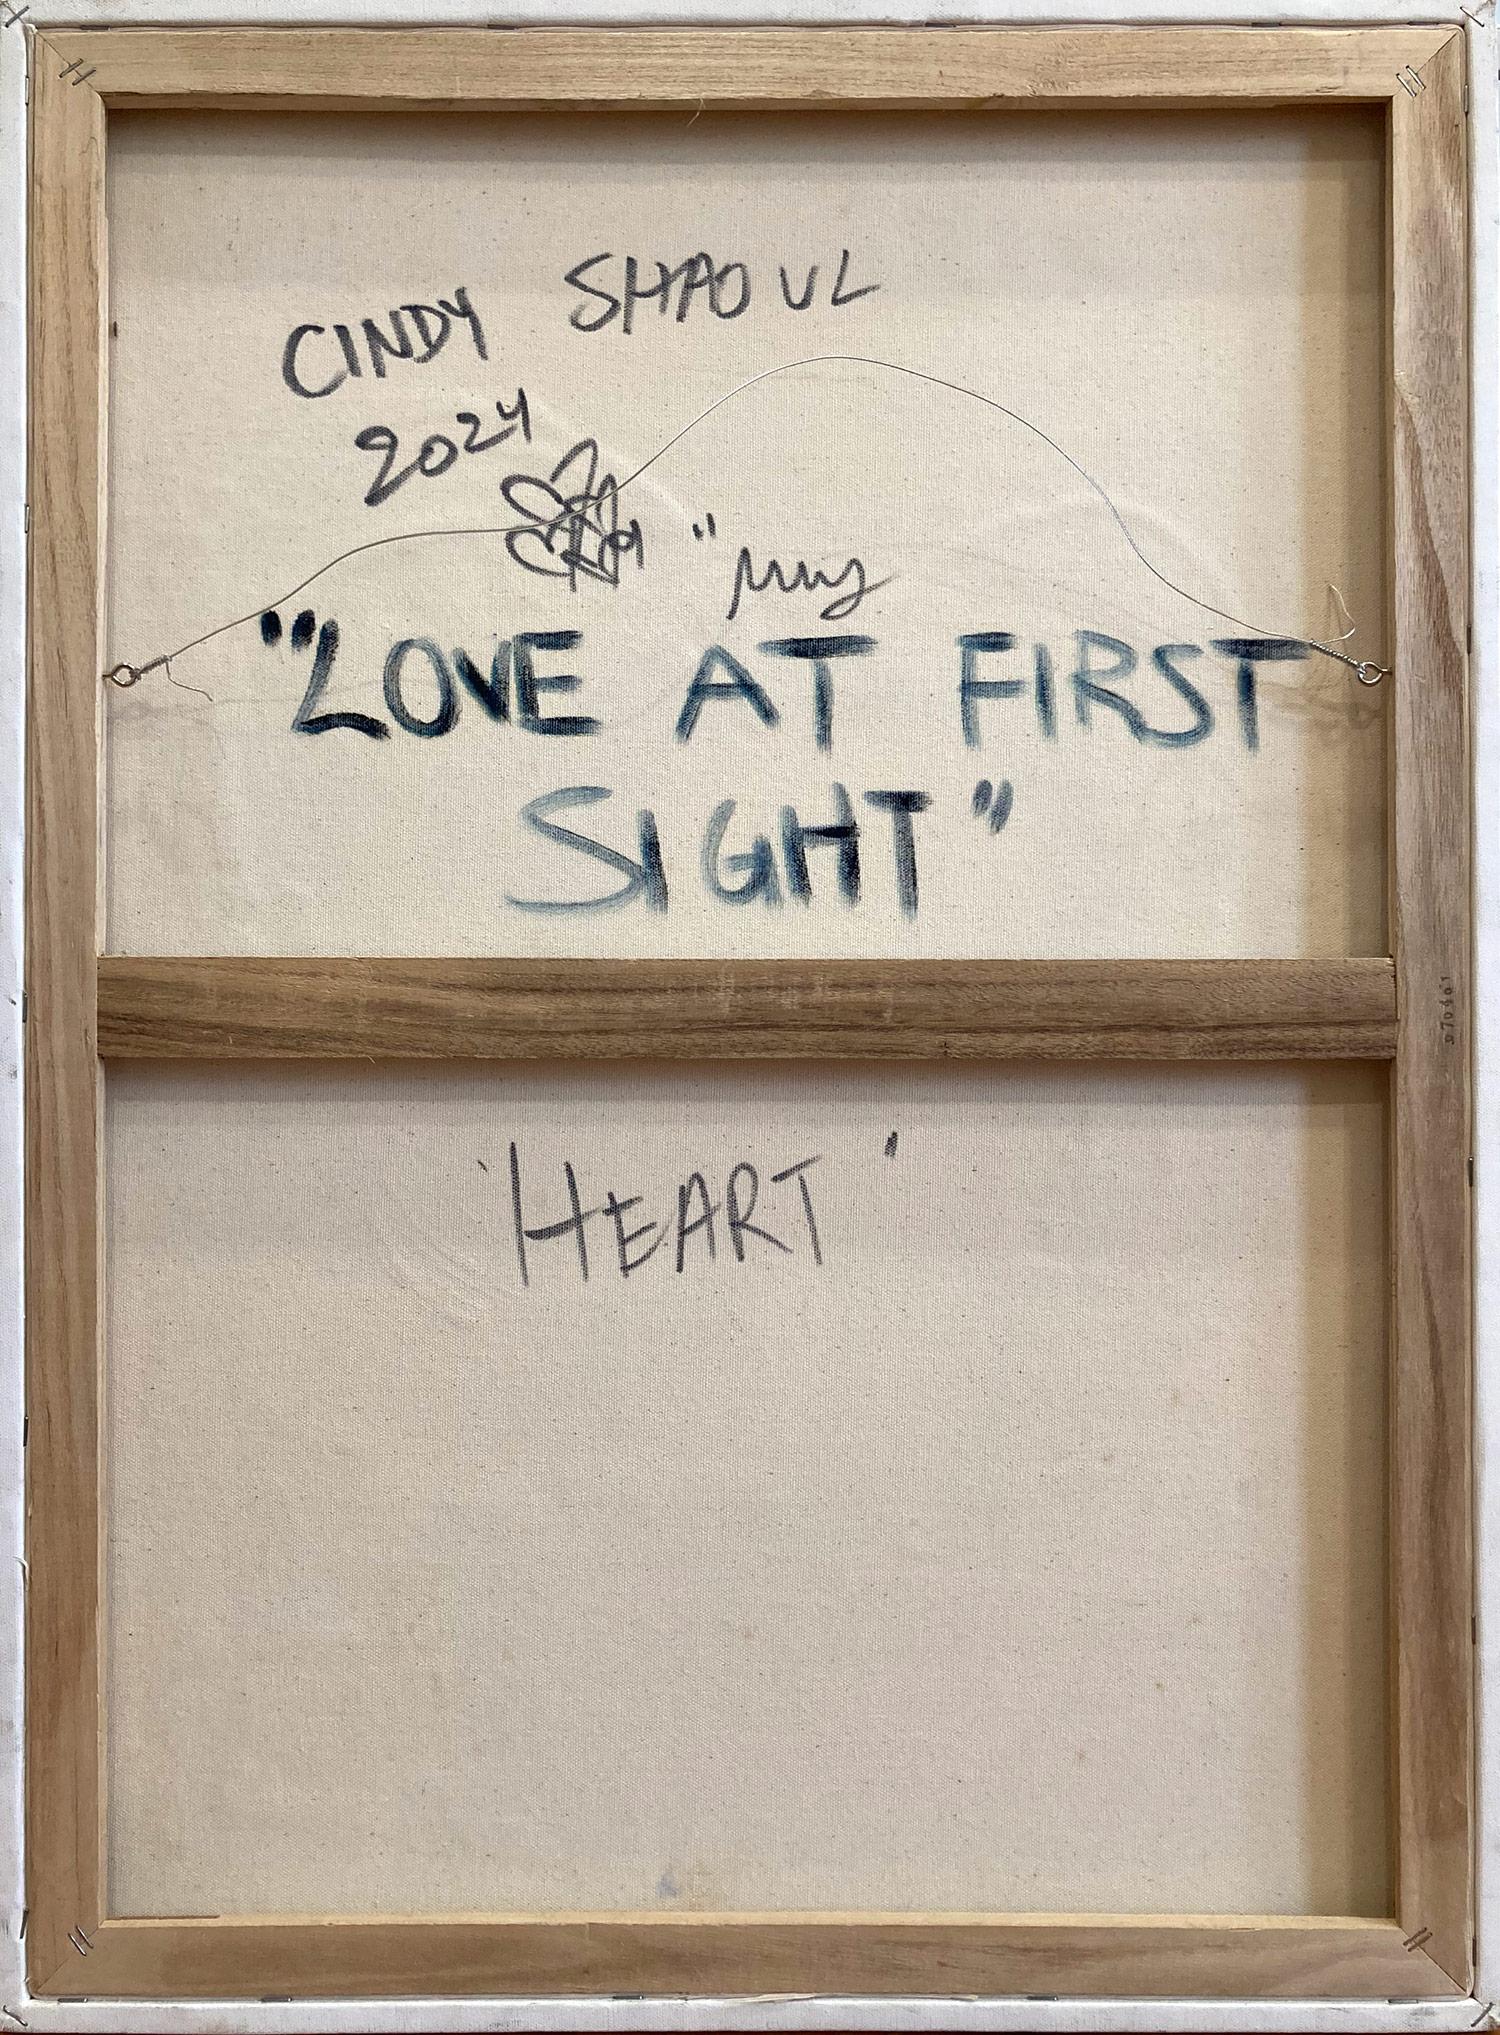 CINDY SHAOUL
2024
"My
"LOVE AT FIRST
SIGHT"
'HEART'